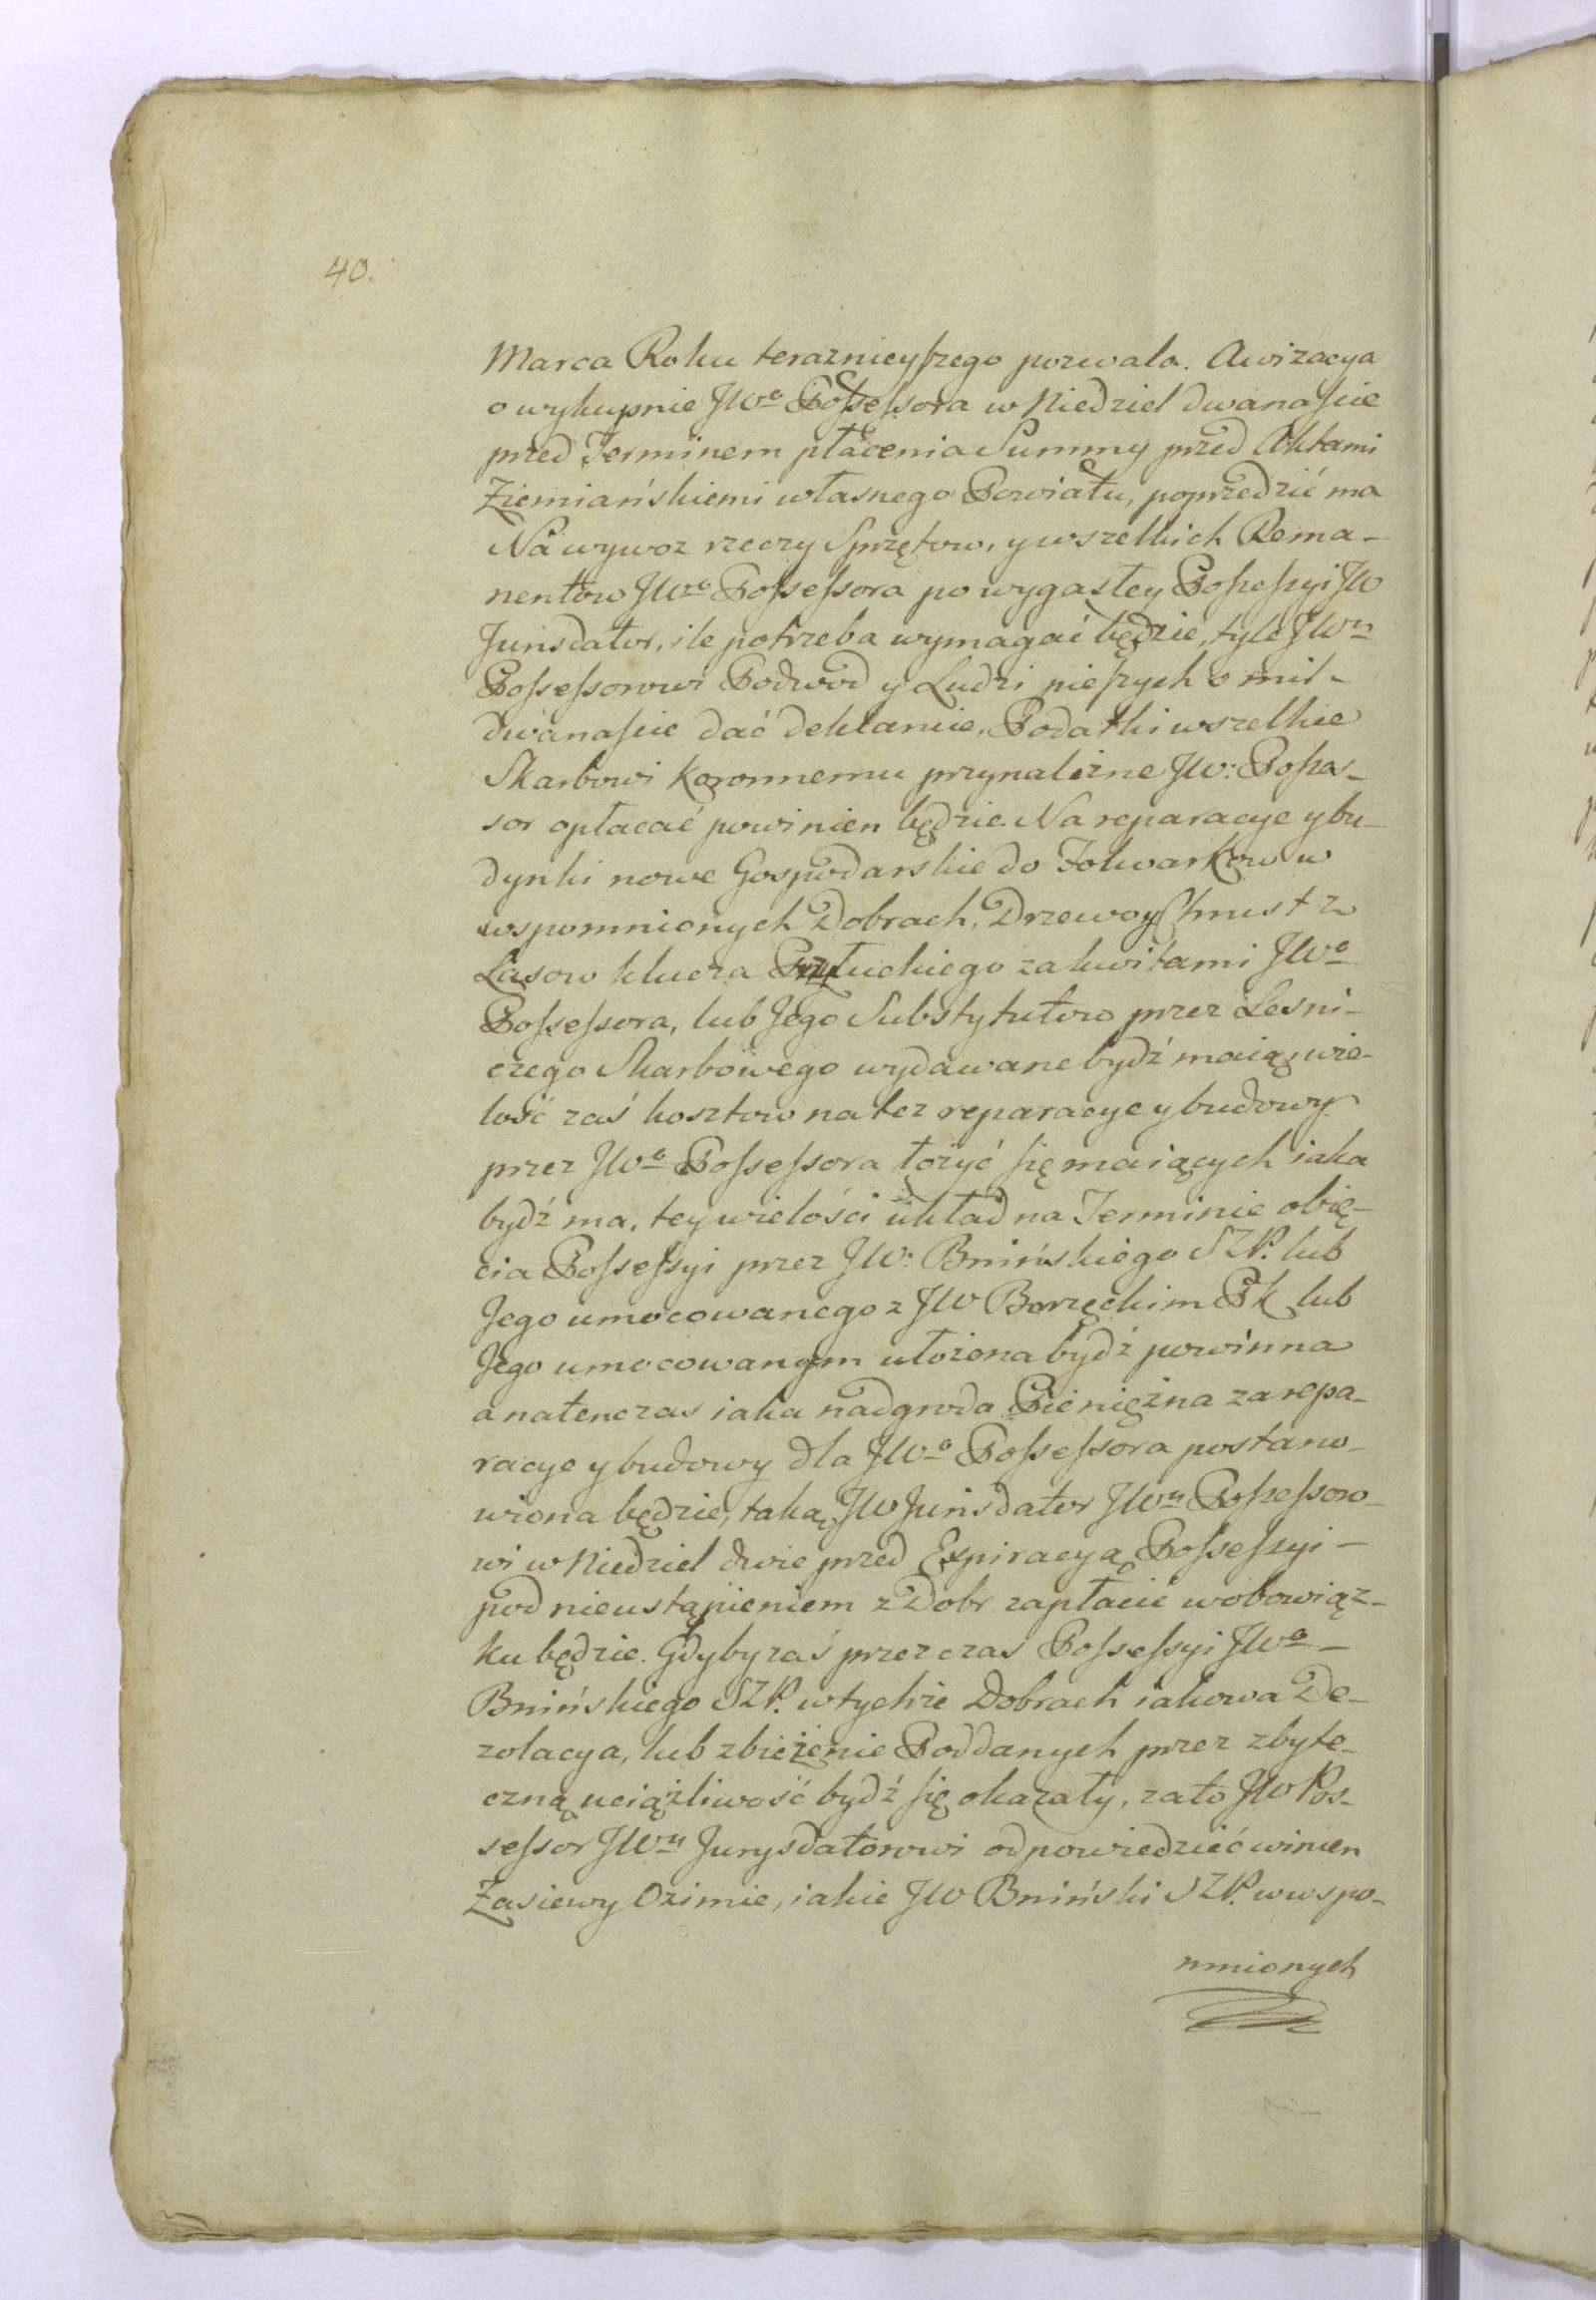 40.
Marca Roku teraznieyszego pozwala. Awizacya
o wykupnie JWo Possessora w Niedziel dwanascie
przed Terminem płacenia Summy przed Aktami
Ziemiańskiemi własnego Powiatu, poprzedzić ma
Na wywoz rzeczy Sprzętow, y wszelkich Rema-
nentow JWo Possessora po wygasłey Possessyi JW
Jurisdator, ile potrzeba wymagać będzie, tyle JWu
Possessorowi Podwod y Ludzi pieszych o mil
dwanascie dać deklaruie, Podatki wszelkie
Skarbowi Koronnemu przynależne JW: Posses-
sor opłacać powinien będzie. Na reparacye y bu-
dynki nowe Gospodarskie do Folwarkow w
wspomnionych Dobrach, Drzewo y Chrust z
Lasow klucza Przytuckiego za kwitami JWo
Possessora, lub Jego Substytutow przez Lesni-
czego Skarbowego wydawane bydź maią, wie-
lość zaś kosztow na tez reparacye y budowy
przez JWo Possessora łożyć się maiących iaka
bydź ma, tey wielości układ na Terminie obię-
cia Possessyi przez JW: Bnińskiego SZP. lub
Jego umocowanego z JW Borzęckim Pk lub
Jego umocowanym ułożona bydź powinna
a natenczas iaka nadgroda Pieniężna za repa-
racye y budowy dla JWo Possessora postano-
wiona będzie, taką JW Jurisdator JWu Possessoro-
wi w Niedziel dwie przed Expiracyą Possessyi -
pod nieustąpieniem z Dobr zapłacić w obowiąz-
ku będzie. Gdyby zaś przez czas Possessyi JWo -
Bnińskiego SZP. w tychże Dobrach iakowa De-
zolacya, lub zbieżenie Poddanych przez zbyte-
czną uciążliwość bydź się okazały, za to JW Pos-
sessor JWu Jurysdatorowi odpowiedzieć winien
Zasiewy Ozimie, iakie JW Bniński SZP. w wspo-
mnionych